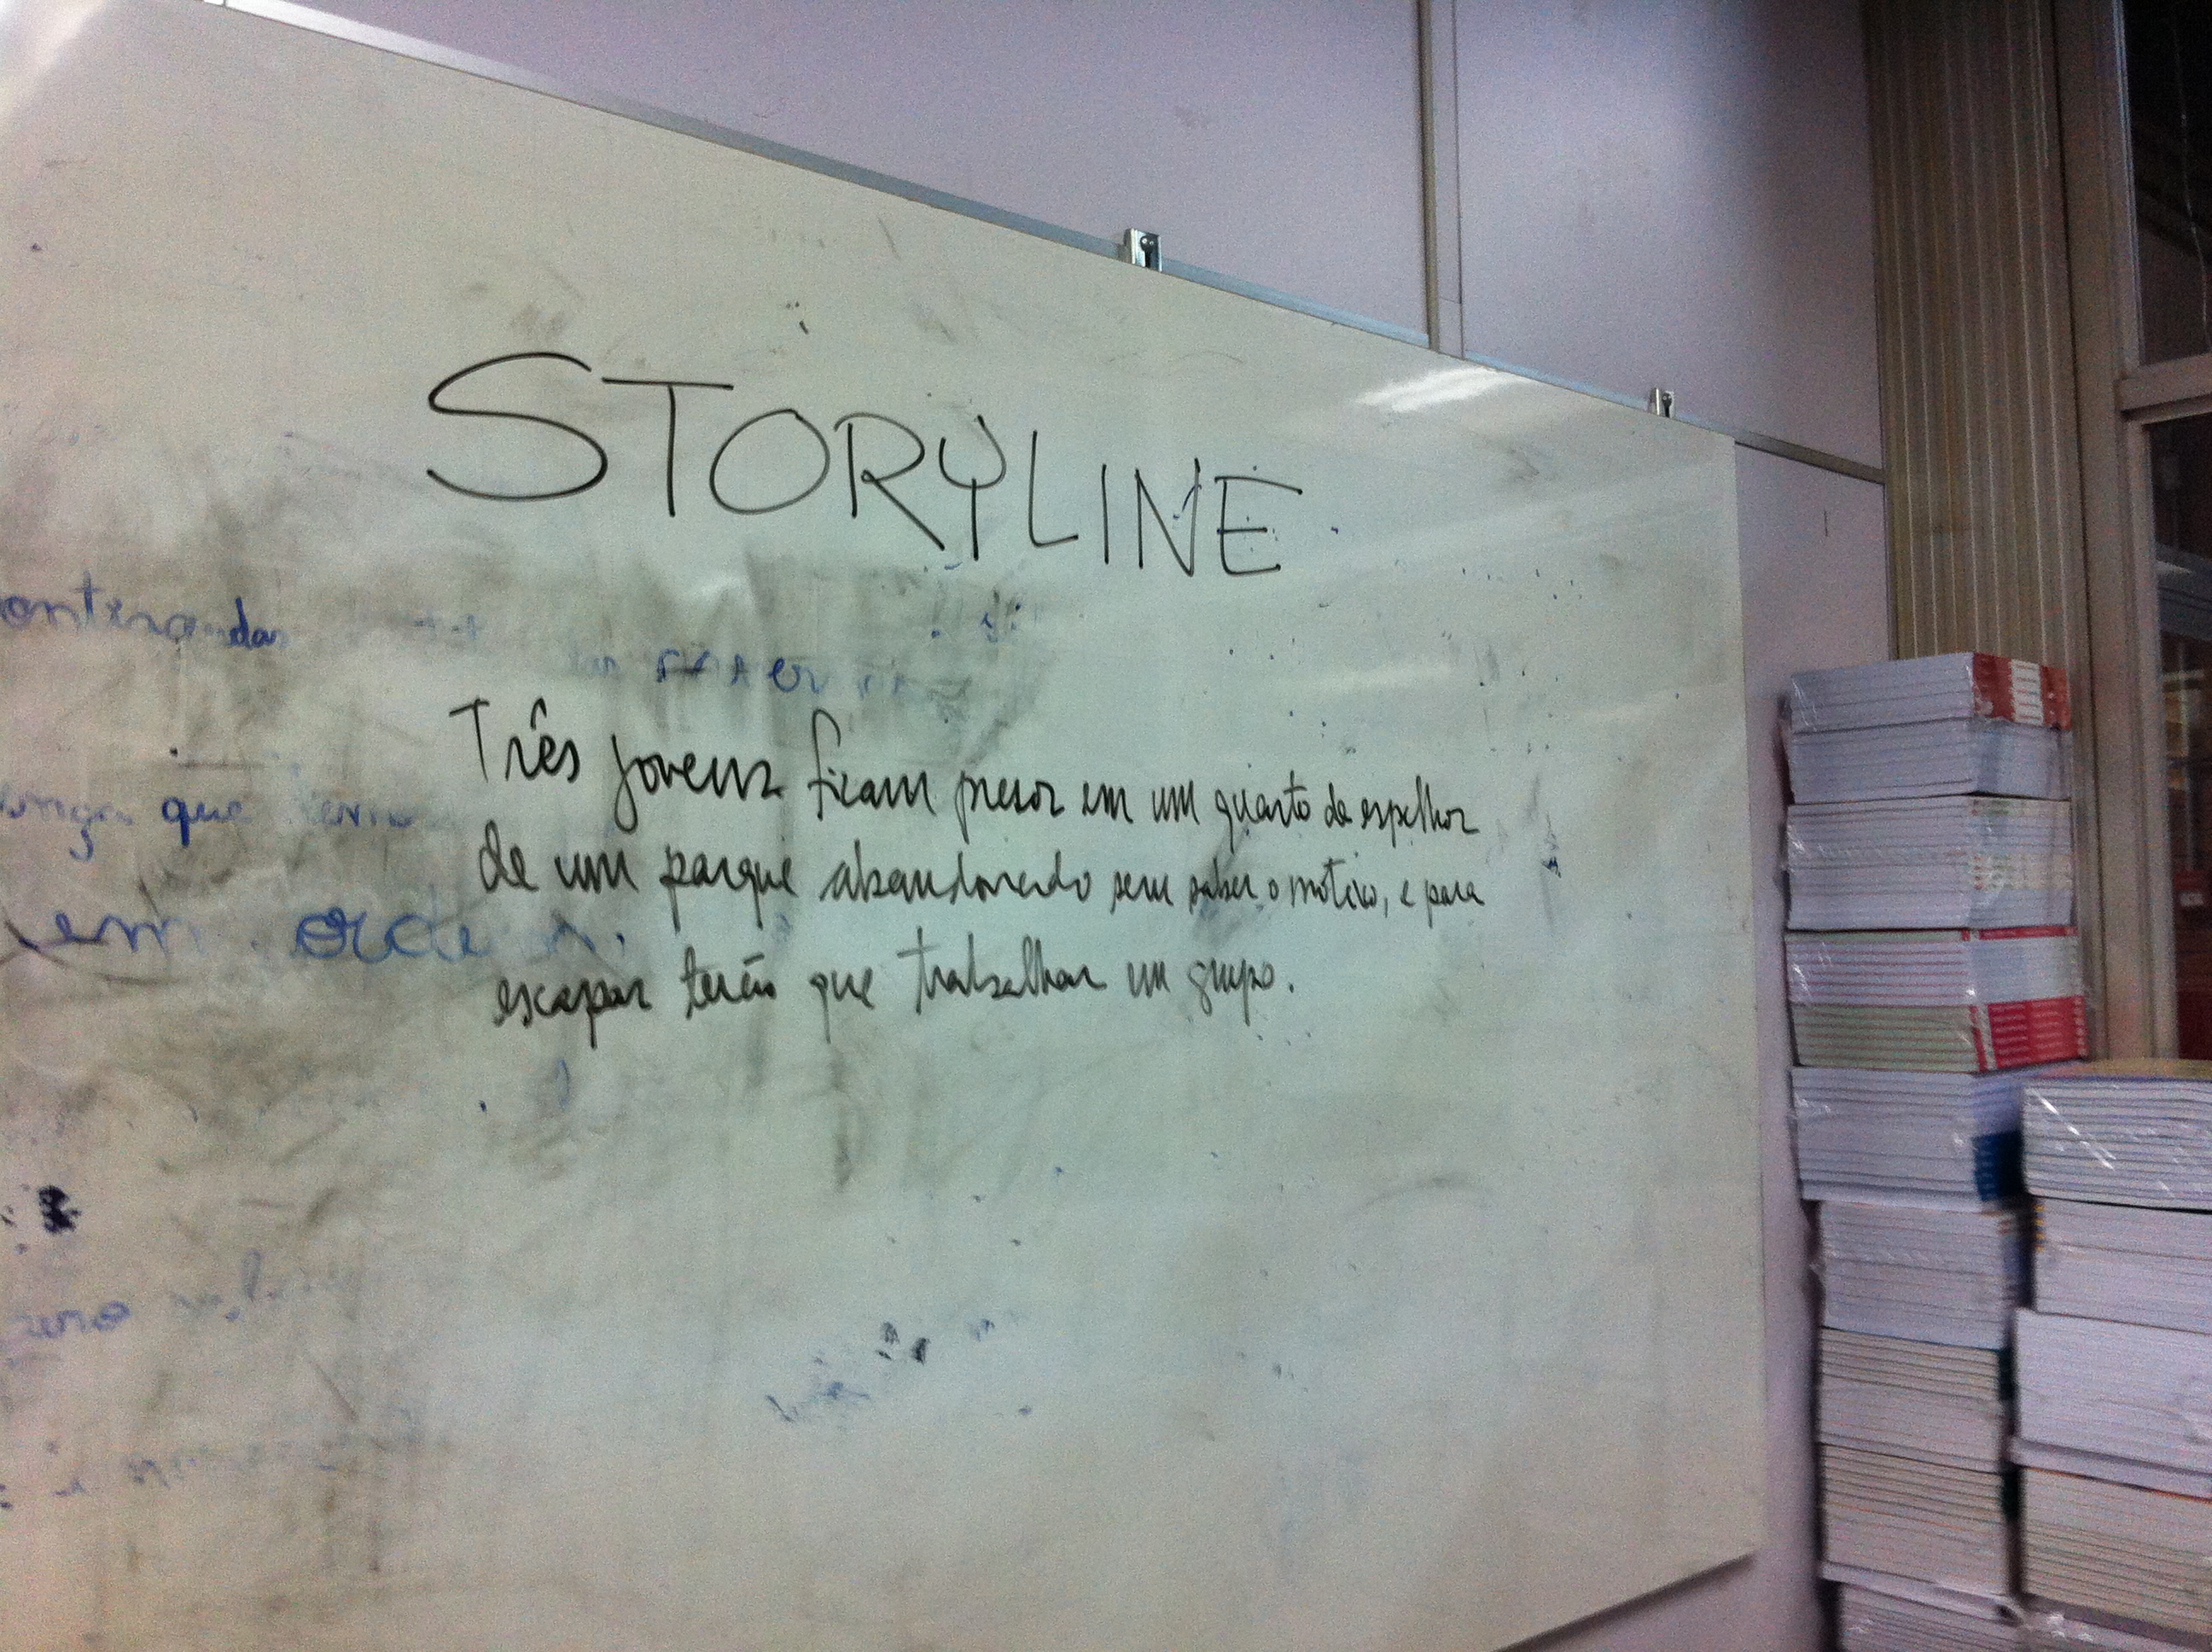 STORYLINE
Três jovens ficam presos em um quarto de espelhos
de um parque abandonado sem saber o motivo, e para
escapar terão que trabalhar em grupo.
que
em orde